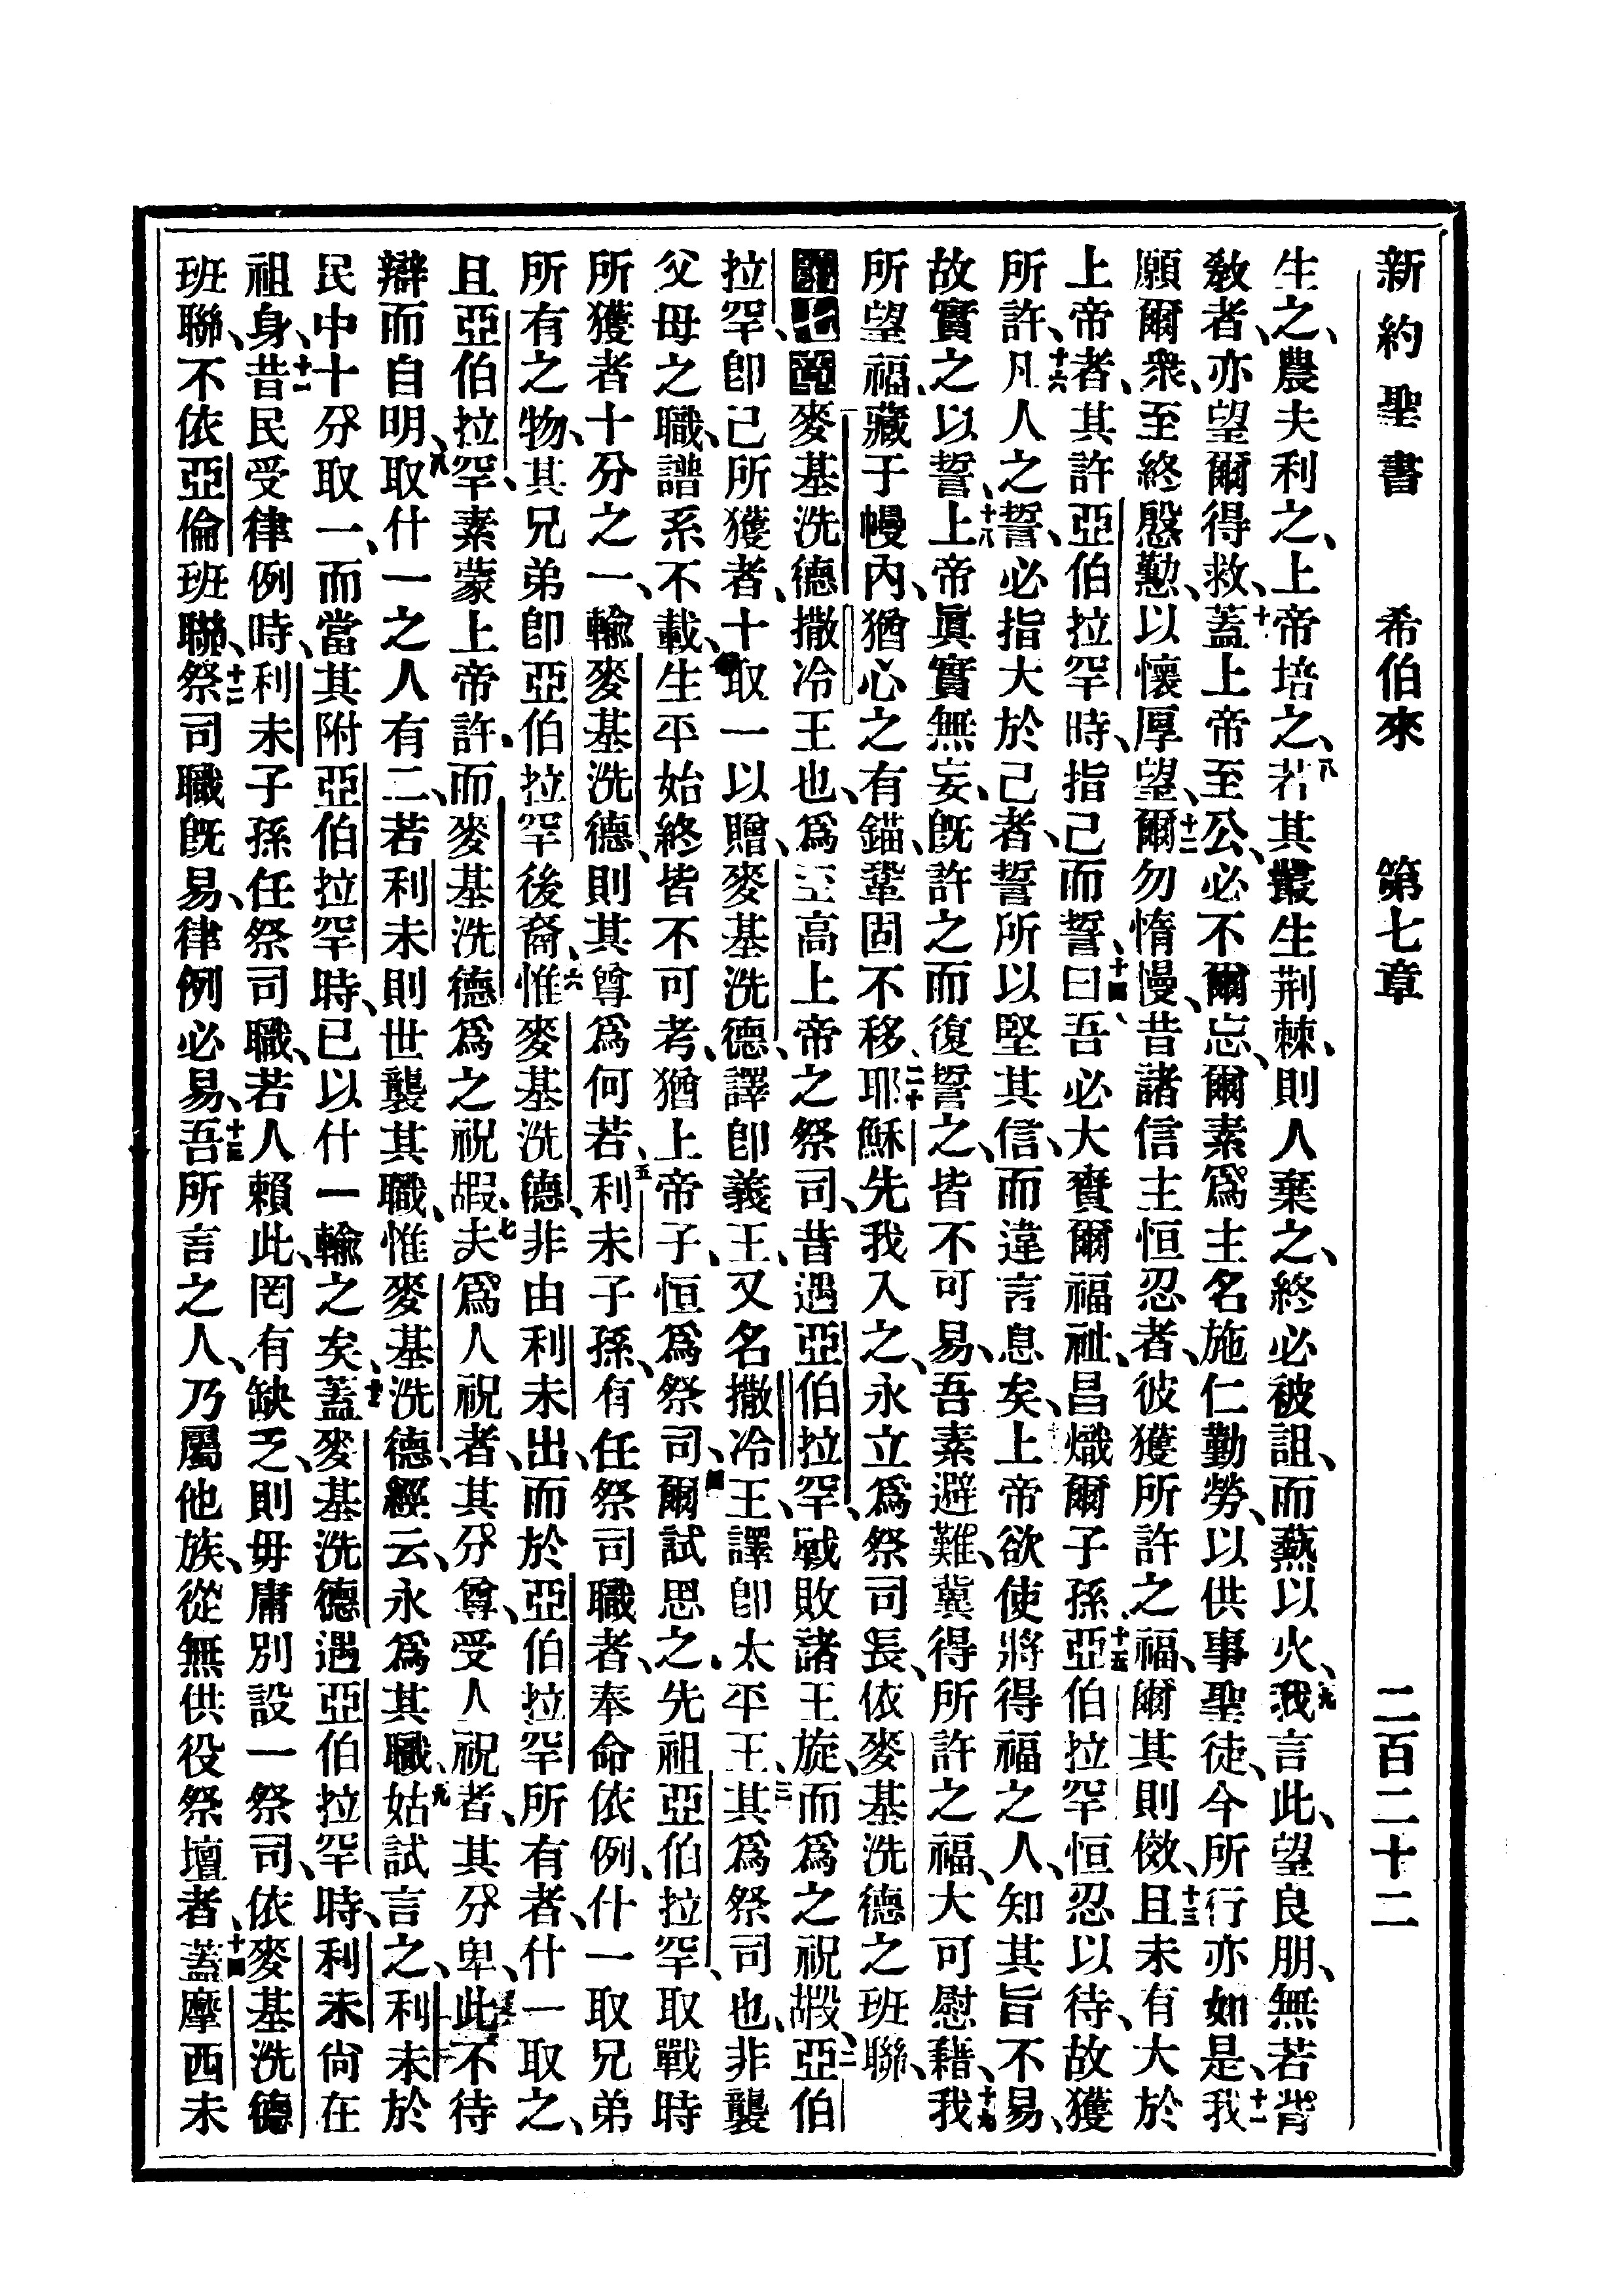 新約聖書 希伯來 第七章 二百二十二
生之、農夫利之、上帝培之、八若其叢生荆棘、則人棄之、終必被詛、而爇以火、九我言此、望良朋、無若背
教者、亦望爾得救、十蓋上帝至公、必不爾忘、爾素爲主名施仁勤勞、以供事聖徒、今所行亦如是、十一我
願爾衆、至終慇懃、以懷厚望、十二爾勿惰慢、昔諸信主恒忍者、彼獲所許之福、爾其則傚、十三且未有大於
上帝者、其許亞伯拉罕時、指己而誓、十四曰、吾必大賚爾福祉、昌熾爾子孫、十五亞伯拉罕恒忍以待、故獲
所許、十六凡人之誓、必指大於己者、誓所以堅其信、而違言息矣、十七上帝欲使將得福之人、知其旨不易、
故實之以誓、十八上帝眞實無妄、旣許之而復誓之、皆不可易、吾素避難、冀得所許之福、大可慰藉、十九我
所望福、藏于幔內、猶心之有錨、鞏固不移、二十耶穌先我入之、永立爲祭司長、依麥基洗德之班聯、
第七章麥基洗德撒冷王也、爲至高上帝之祭司、昔遇亞伯拉罕、戰敗諸王旋、而爲之祝嘏、二亞伯
拉罕、卽己所獲者、十取一以贈、麥基洗德、譯卽義王、又名撒冷王、譯卽太平王、三其爲祭司也、非襲
父母之職、譜系不載、生平始終、皆不可考、猶上帝子、恒爲祭司、四爾試思之、先祖亞伯拉罕、取戰時
所獲者十分之一、輸麥基洗德、則其尊爲何若、五利未子孫、有任祭司職者、奉命依例、什一取兄弟
所有之物、其兄弟卽亞伯拉罕後裔、六惟麥基洗德、非由利未出、而於亞伯拉罕所有者、什一取之、
且亞伯拉罕、素蒙上帝許、而麥基洗德爲之祝嘏、七夫爲人祝者、其分尊、受人祝者、其分卑、此不待
辯而自明、八取什一之人有二、若利未則世襲其職、惟麥基洗德、經云、永爲其職、九姑試言之、利未於
民中十分取一、而當其附亞伯拉罕時、已以什一輸之矣、十蓋麥基洗德遇亞伯拉罕時、利未尙在
祖身、十一昔民受律例時、利未子孫任祭司職、若人賴此、罔有缺乏、則毋庸別設一祭司、依麥基洗德
班聯、不依亞倫班聯、十二祭司職旣易、律例必易、十三吾所言之人、乃屬他族、從無供役祭壇者、十四蓋摩西未